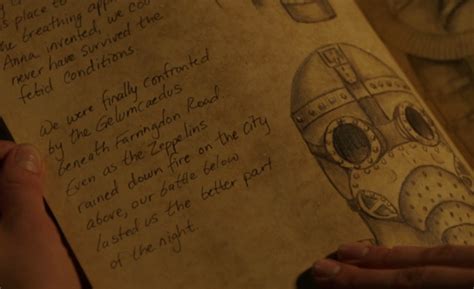 place to
the breathing app
Anna invented, we cou
never have survived the
fetid conditions.
We were finally confronted
by the Gelumcaedus
beneath Farringdon Road
Even as the Zeppelins
rained down fire on the City
above, our battle below
lasted us the better part
of the night.